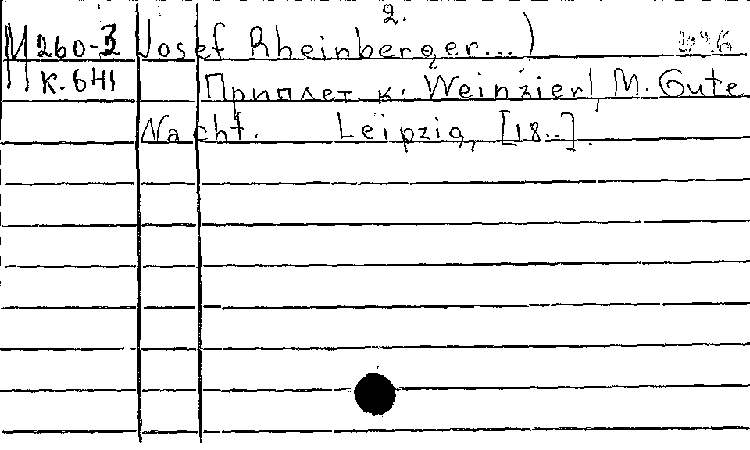 2.
М 260-3 Josef Rheinberger...)
К. 641 Приплет к: Weinzierl, M. Gute
Nacht. Leipzig, [18..].